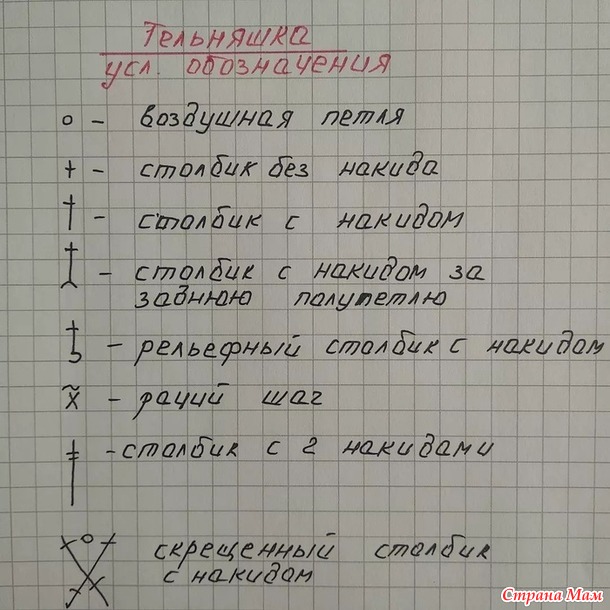 Тельняшка
усл. обозначения
o - воздушная петля
+ - столбик без накида
† - столбик с накидом
- столбик с накидом за
заднюю полупетлю
- рельефный столбик с накидом
x̃ - рачий шаг
- столбик с 2 накидами
скрещенный столбик
с накидом
Страна Мам